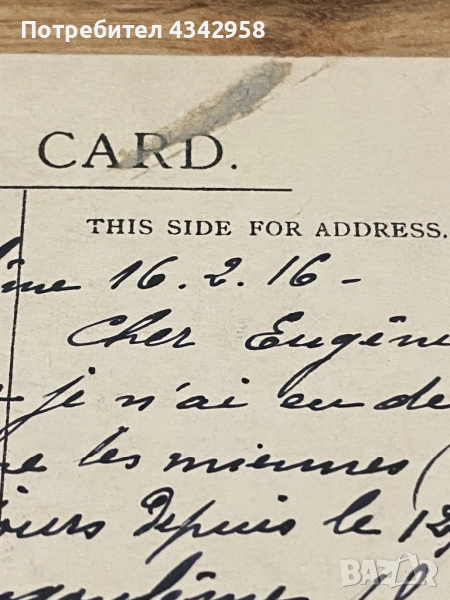 Потребител 4342958
CARD.
THIS SIDE FOR ADDRESS.
16.2.16 -
Cher Eugène
je n'ai eu de
les miennes (
jours depuis le 12
BAZAR